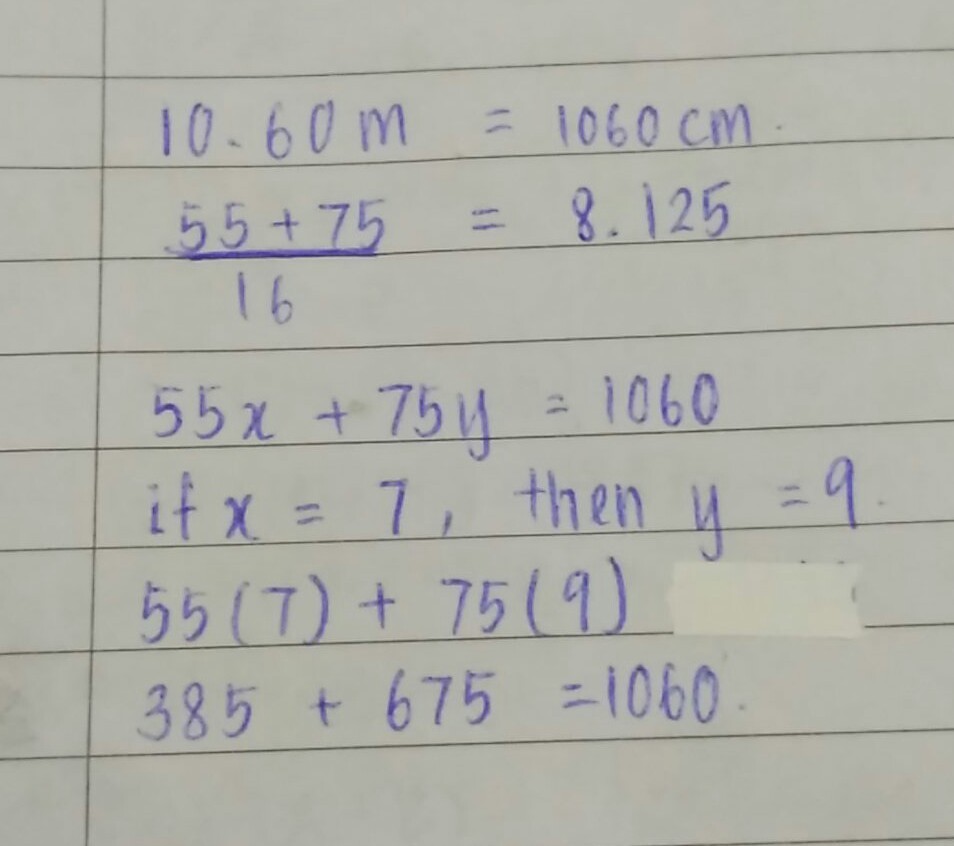 10.60 m = 1060 cm.
55 + 75 = 8.125
16
55x + 75y = 1060
if x = 7, then y = 9.
55(7) + 75(9)
385 + 675 = 1060.